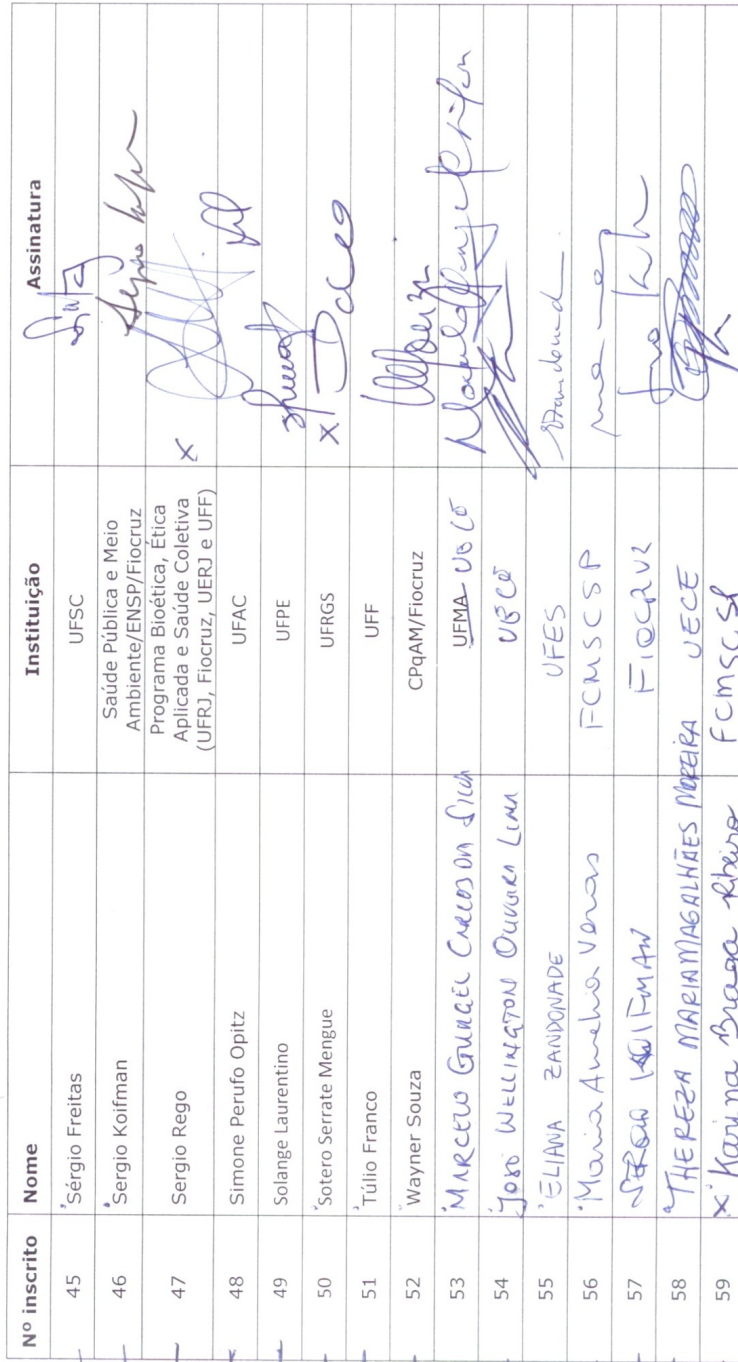 Nº inscrito Nome Instituição Assinatura
45 Sérgio Freitas UFSC
46 Sergio Koifman Saúde Pública e Meio
Ambiente/ENSP/Fiocruz
47 Sergio Rego Programa Bioética, Ética
Aplicada e Saúde Coletiva
(UFRJ, Fiocruz, UERJ e UFF) X
48 Simone Perufo Opitz UFAC
49 Solange Laurentino UFPE
50 Sotero Serrate Mengue UFRGS X
51 Túlio Franco UFF
52 Wayner Souza CPqAM/Fiocruz
53 MARCELO GURGEL CARLOS DA SILVA UFMA UECE
54 JOSÉ WELLINGTON OLIVEIRA LIMA UECE
55 ELIANA ZANDONADE UFES
56 Maria Amelia Veras FCMSCSP
57 FIOCRUZ
58 THEREZA MARIA MAGALHÃES MOREIRA UECE
59 X Karina Braga Ribeiro FCMSCSP